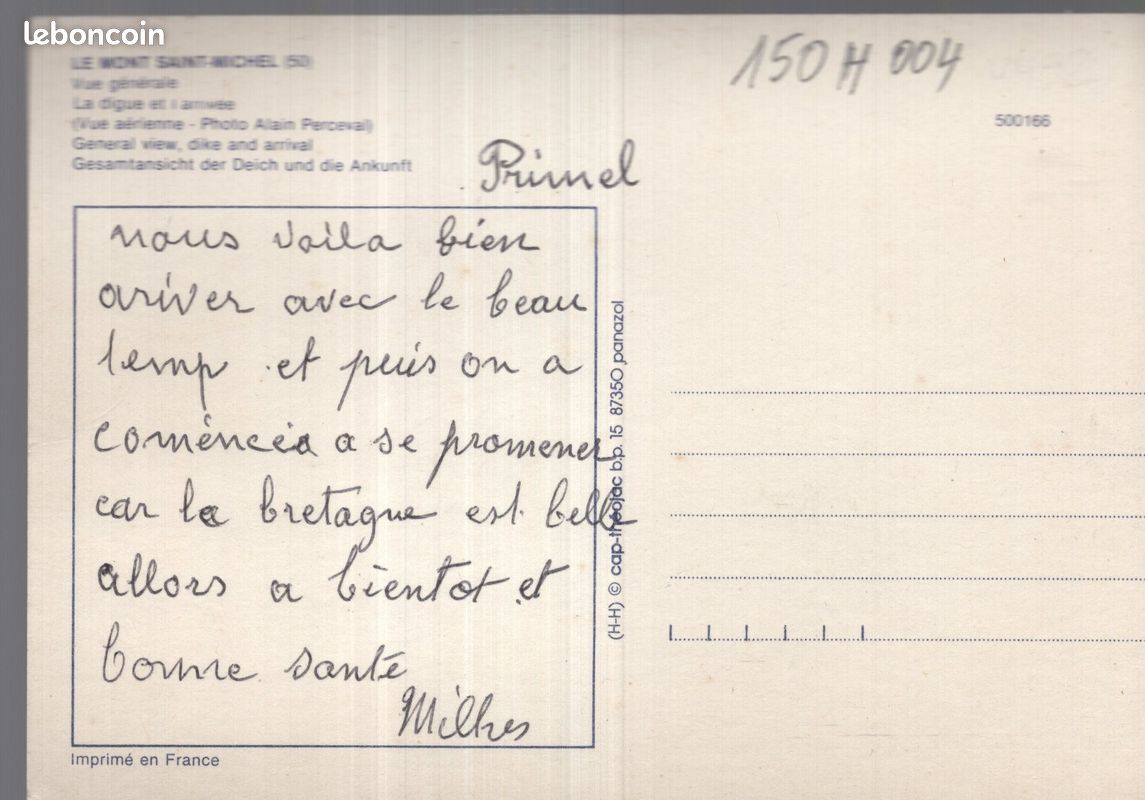 leboncoin
LE MONT SAINT-MICHEL (50)
Vue générale
La digue et l'arrivée
(Vue aérienne - Photo Alain Perceval)
General view, dike and arrival
Gesamtansicht der Deich und die Ankunft
150 H 004
500166
Primel
nous voila bien
ariver avec le beau
temp et puis on a
coméncéa a se promener
car la bretagne est belle
allors a bientot et
bonne santé
Imprimé en France
(H-H) © cap-théojac b.p. 15 87350 panazol